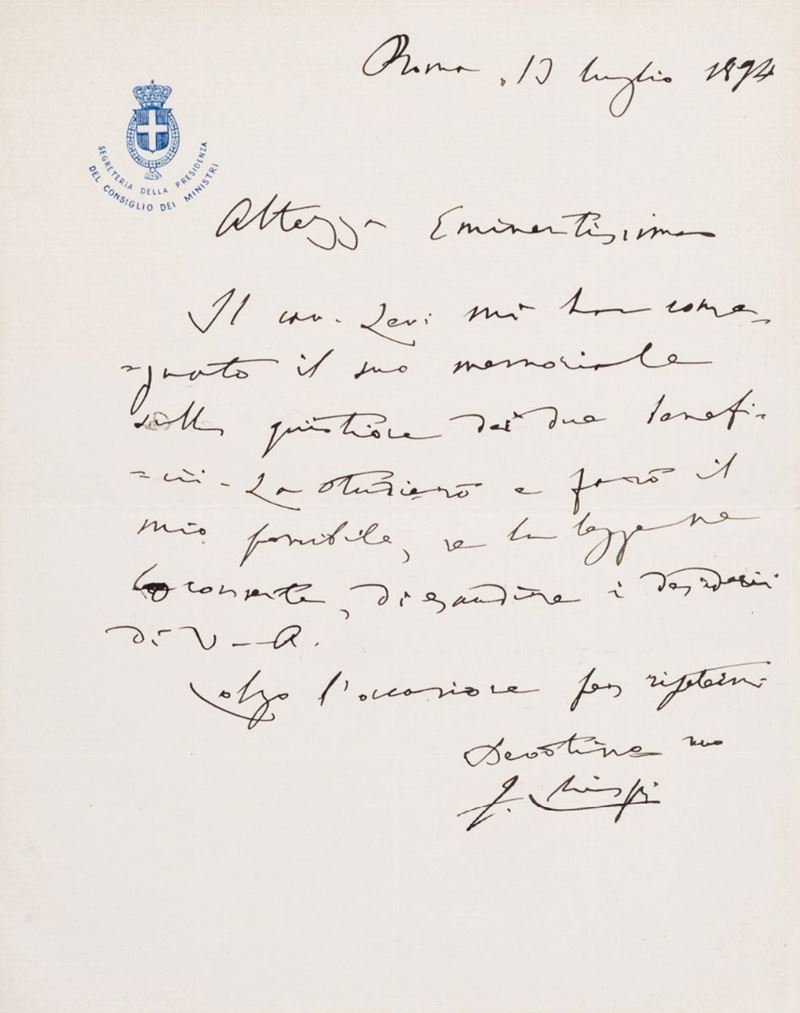 Roma, 13 luglio 1894
SEGRETERIA DELLA PRESIDENZA
DEL CONSIGLIO DEI MINISTRI
Altezza Eminentissima
Il cav. Levi mi ha conse-
=gnato il suo memoriale
sulla quistione dei due benefi-
=cii. La studierò e farò il
mio possibile, se la legge me
lo consente, di esaudire i desideri
di V. A.
Colgo l'occasione per ripetermi
Devotissimo suo
F. Crispi